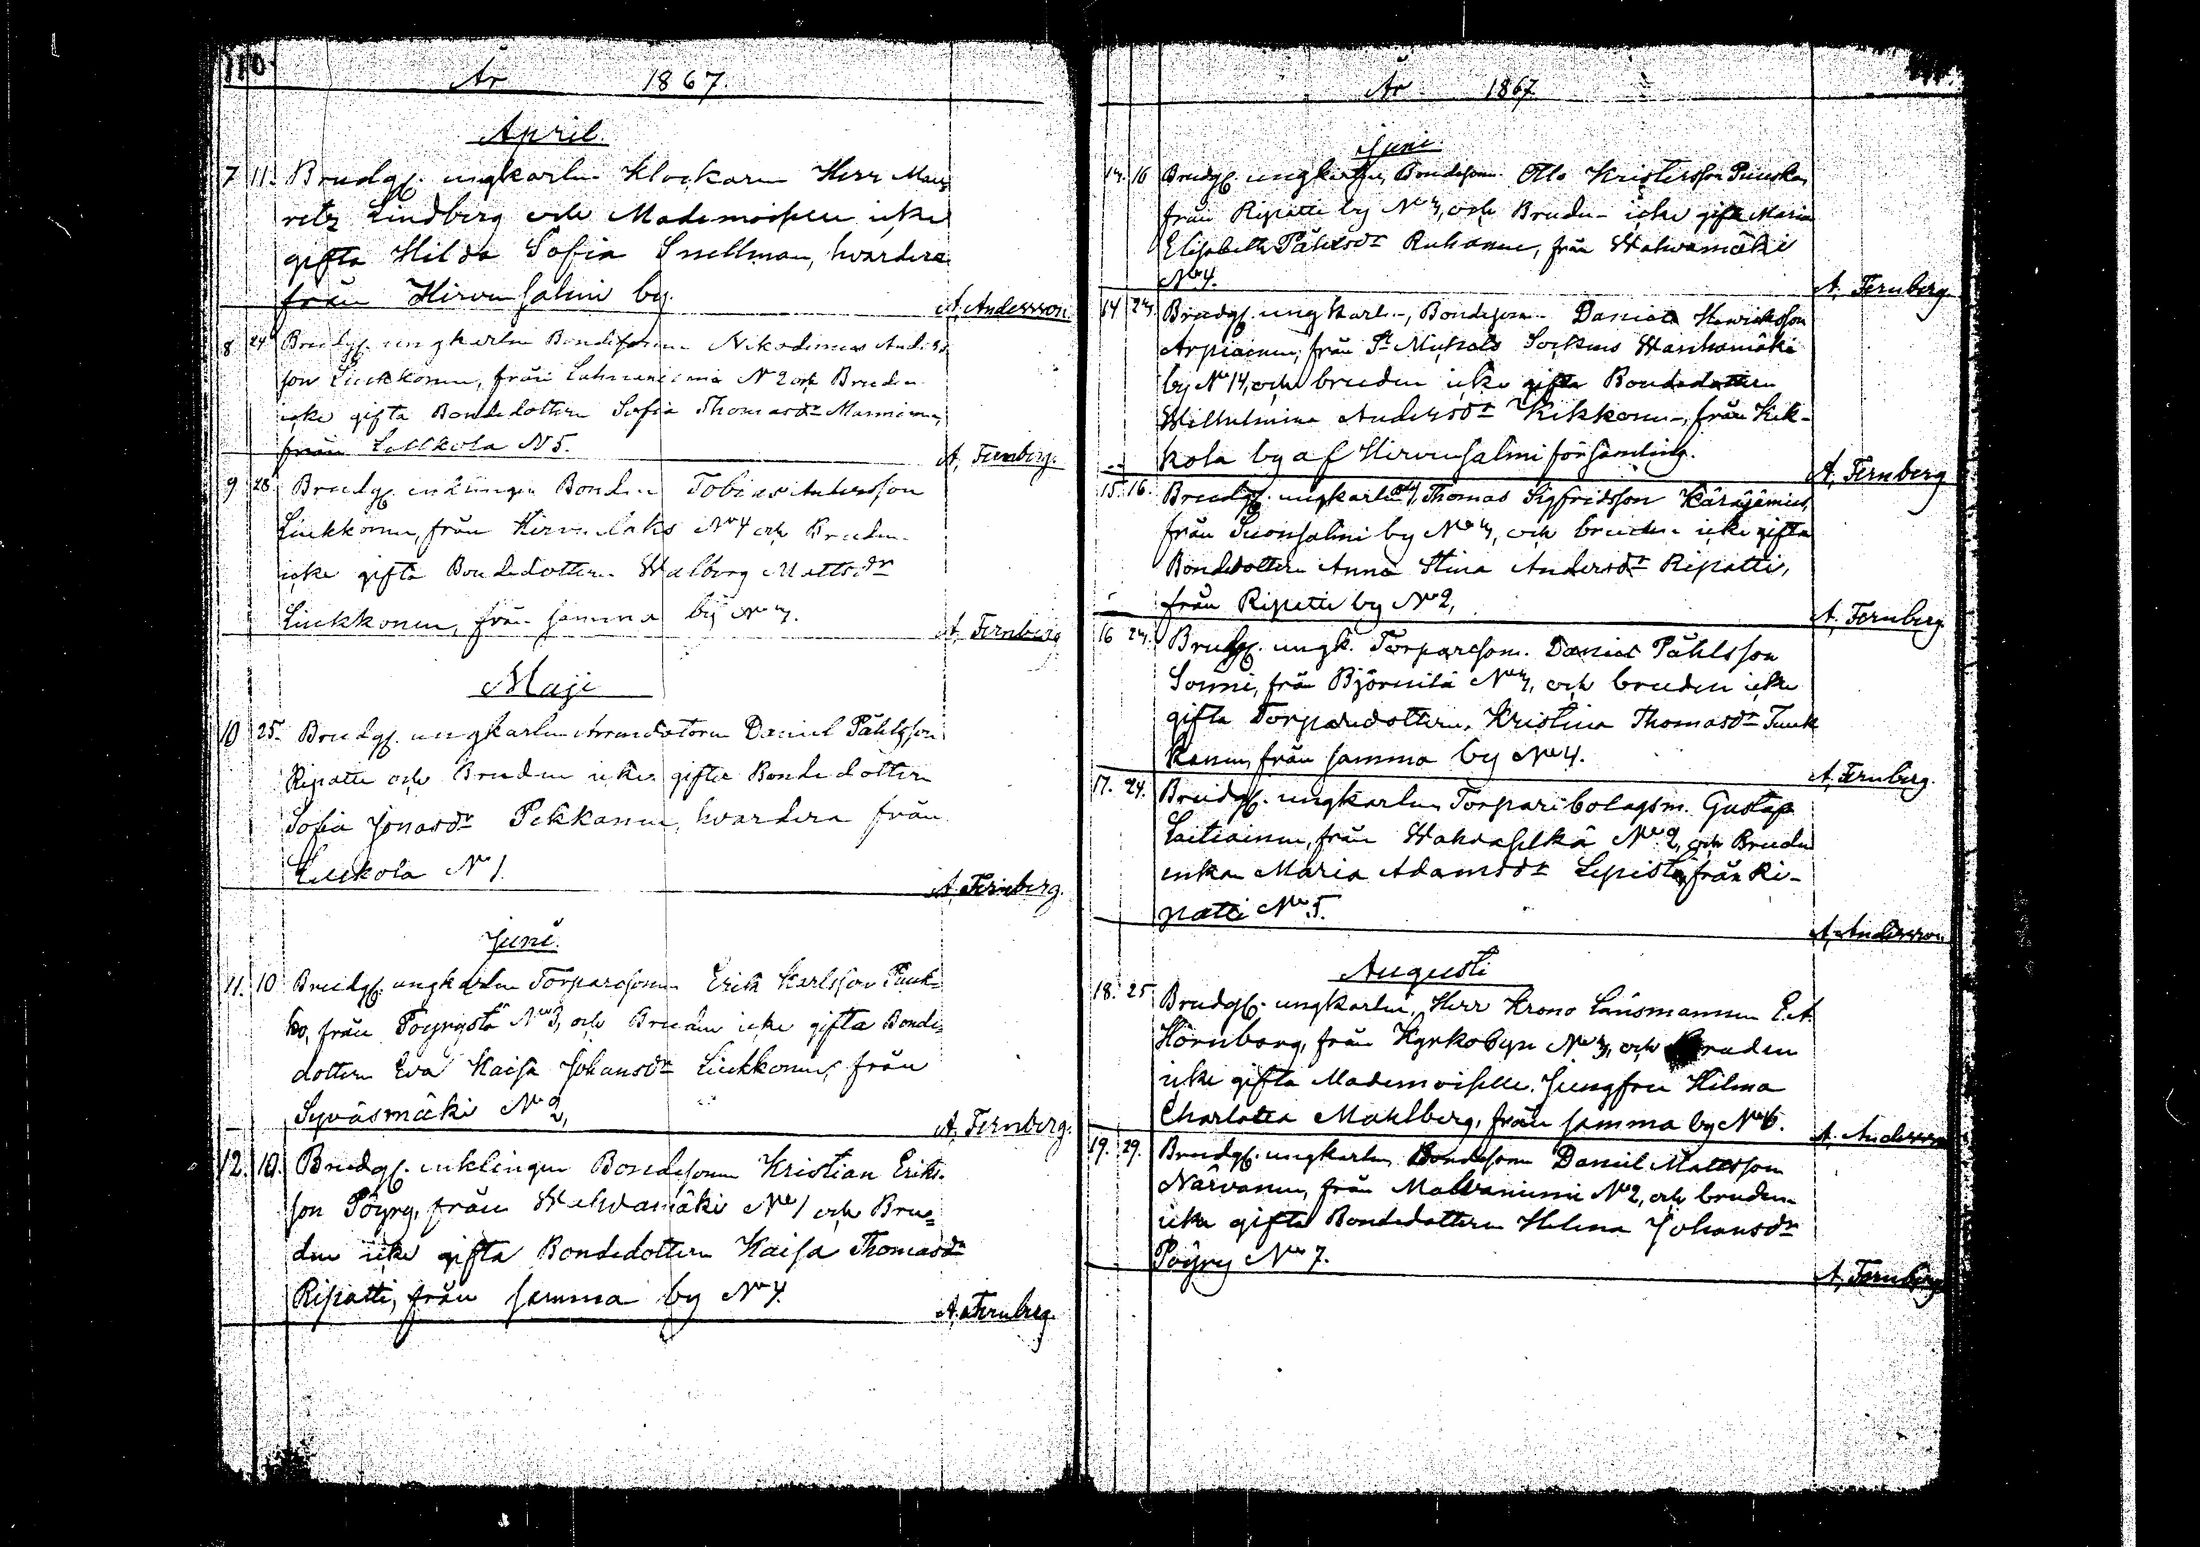 110.
År 1867.
April.
7 11. Brudg. ungkarlen Klockaren Herr Mau-
ritz Lindberg och Mademoisellen icke
gifta Hilda Sofia Snellman, hvardera
från Hirvensalmi by.
A. Andersson.
8 24 Brudg. ungkarlen Bondesonen Nikodemus Anders-
son Liukkonen, från Lahnaniemi N 2 och Bruden
icke gifta Bondedottern Sofia Thomasdr Manninen,
från Leukola N 5.
A. Fernberg.
9 28 Brudg. enklingen Bonden Tobias Andersson
Liukkonen, från Hirvenlaks No 4 och Bruden
icke gifta Bondedottern Walborg Mattsdr
Liukkonen, från samma by No 3.
A. Fernberg
Maji
10 25. Brudg. ungkarlen Arrendatorn Daniel Påhlsson
Ripatti och Bruden icke gifta Bondedottern
Sofia Jonasdr Pekkanen, hvardera från
Leukola No 1.
A. Fernberg.
Juni.
11. 10 Brudg. ungkarlen Torparesonen Erik Karlsson Puuk-
ko, från Pöyrystä No 3, och Bruden icke gifta Bonde-
dottern Eva Kaisa Johansdr Liukkonen, från
Syväsmäki No 2,
A. Fernberg.
12. 10. Brudg. enklingen Bondesonen Kristian Eriks-
son Pöyry, från Wahvamäki No 1 och Bru-
den icke gifta Bondedottern Kaisa Thomasdr
Ripatti, från samma by No 4.
A. Fernberg.
År 1867.
Juni.
13. 16 Brudg. ungkarlen, Bondeson. Otto Kristersson Puuska,
från Ripatti by No 3, och Bruden icke gifta Maria
Elisabeth Påhlsdr Ruhanen, från Wahvamäki
No 4.
A. Fernberg.
14 23. Brudg. ungkarlen, Bondeson Daniel Henriksson
Arpiainen, från St Michels Sockens Wanhamäki
by No 14, och bruden icke gifta Bondedottern
Wilhelmina Andersdr Kekkonen, från Kek-
kola by af Hirvensalmi församling.
A. Fernberg
15. 16. Brudg. ungkarlen, Thomas Sigfridsson Käräjämies,
från Suonsalmi by No 3, och bruden icke gifta
Bondedottern Anna Stina Andersdr Ripatti,
från Ripatti by No 2,
A. Fernberg.
16 23. Brudg. ungk. Torpareson. Daniel Påhlsson
Sonni, från Björnilä No 3, och bruden icke
gifta Torparedottern, Kristina Thomasdr Tuuk
kanen, från samma by No 4.
A. Fernberg.
17. 24. Brudg. ungkarlen Torpari bolagsm. Gustaf
Laitiainen, från Wahvaselkä No 2, och Bruden
enkan Maria Adamsdr Lepistö, från Ri-
patti No 5.
A. Andersson
Augusti
18. 25 Brudg. ungkarlen, Herr Krono Länsmannen E. A.
Hörnborg, från Kyrkobyn No 3, och Bruden
icke gifta Mademoiselle. Jungfru Hilma
Charlotta Mahlberg, från samma by No 6.
A. Andersson
19. 29. Brudg. ungkarlen Bondesonen Daniel Mattsson
Närvänen, från Malvaniemi No 2, och bruden
icke gifta Bondedottern Helena Johansdr
Pöyry No 7.
A. Fernberg